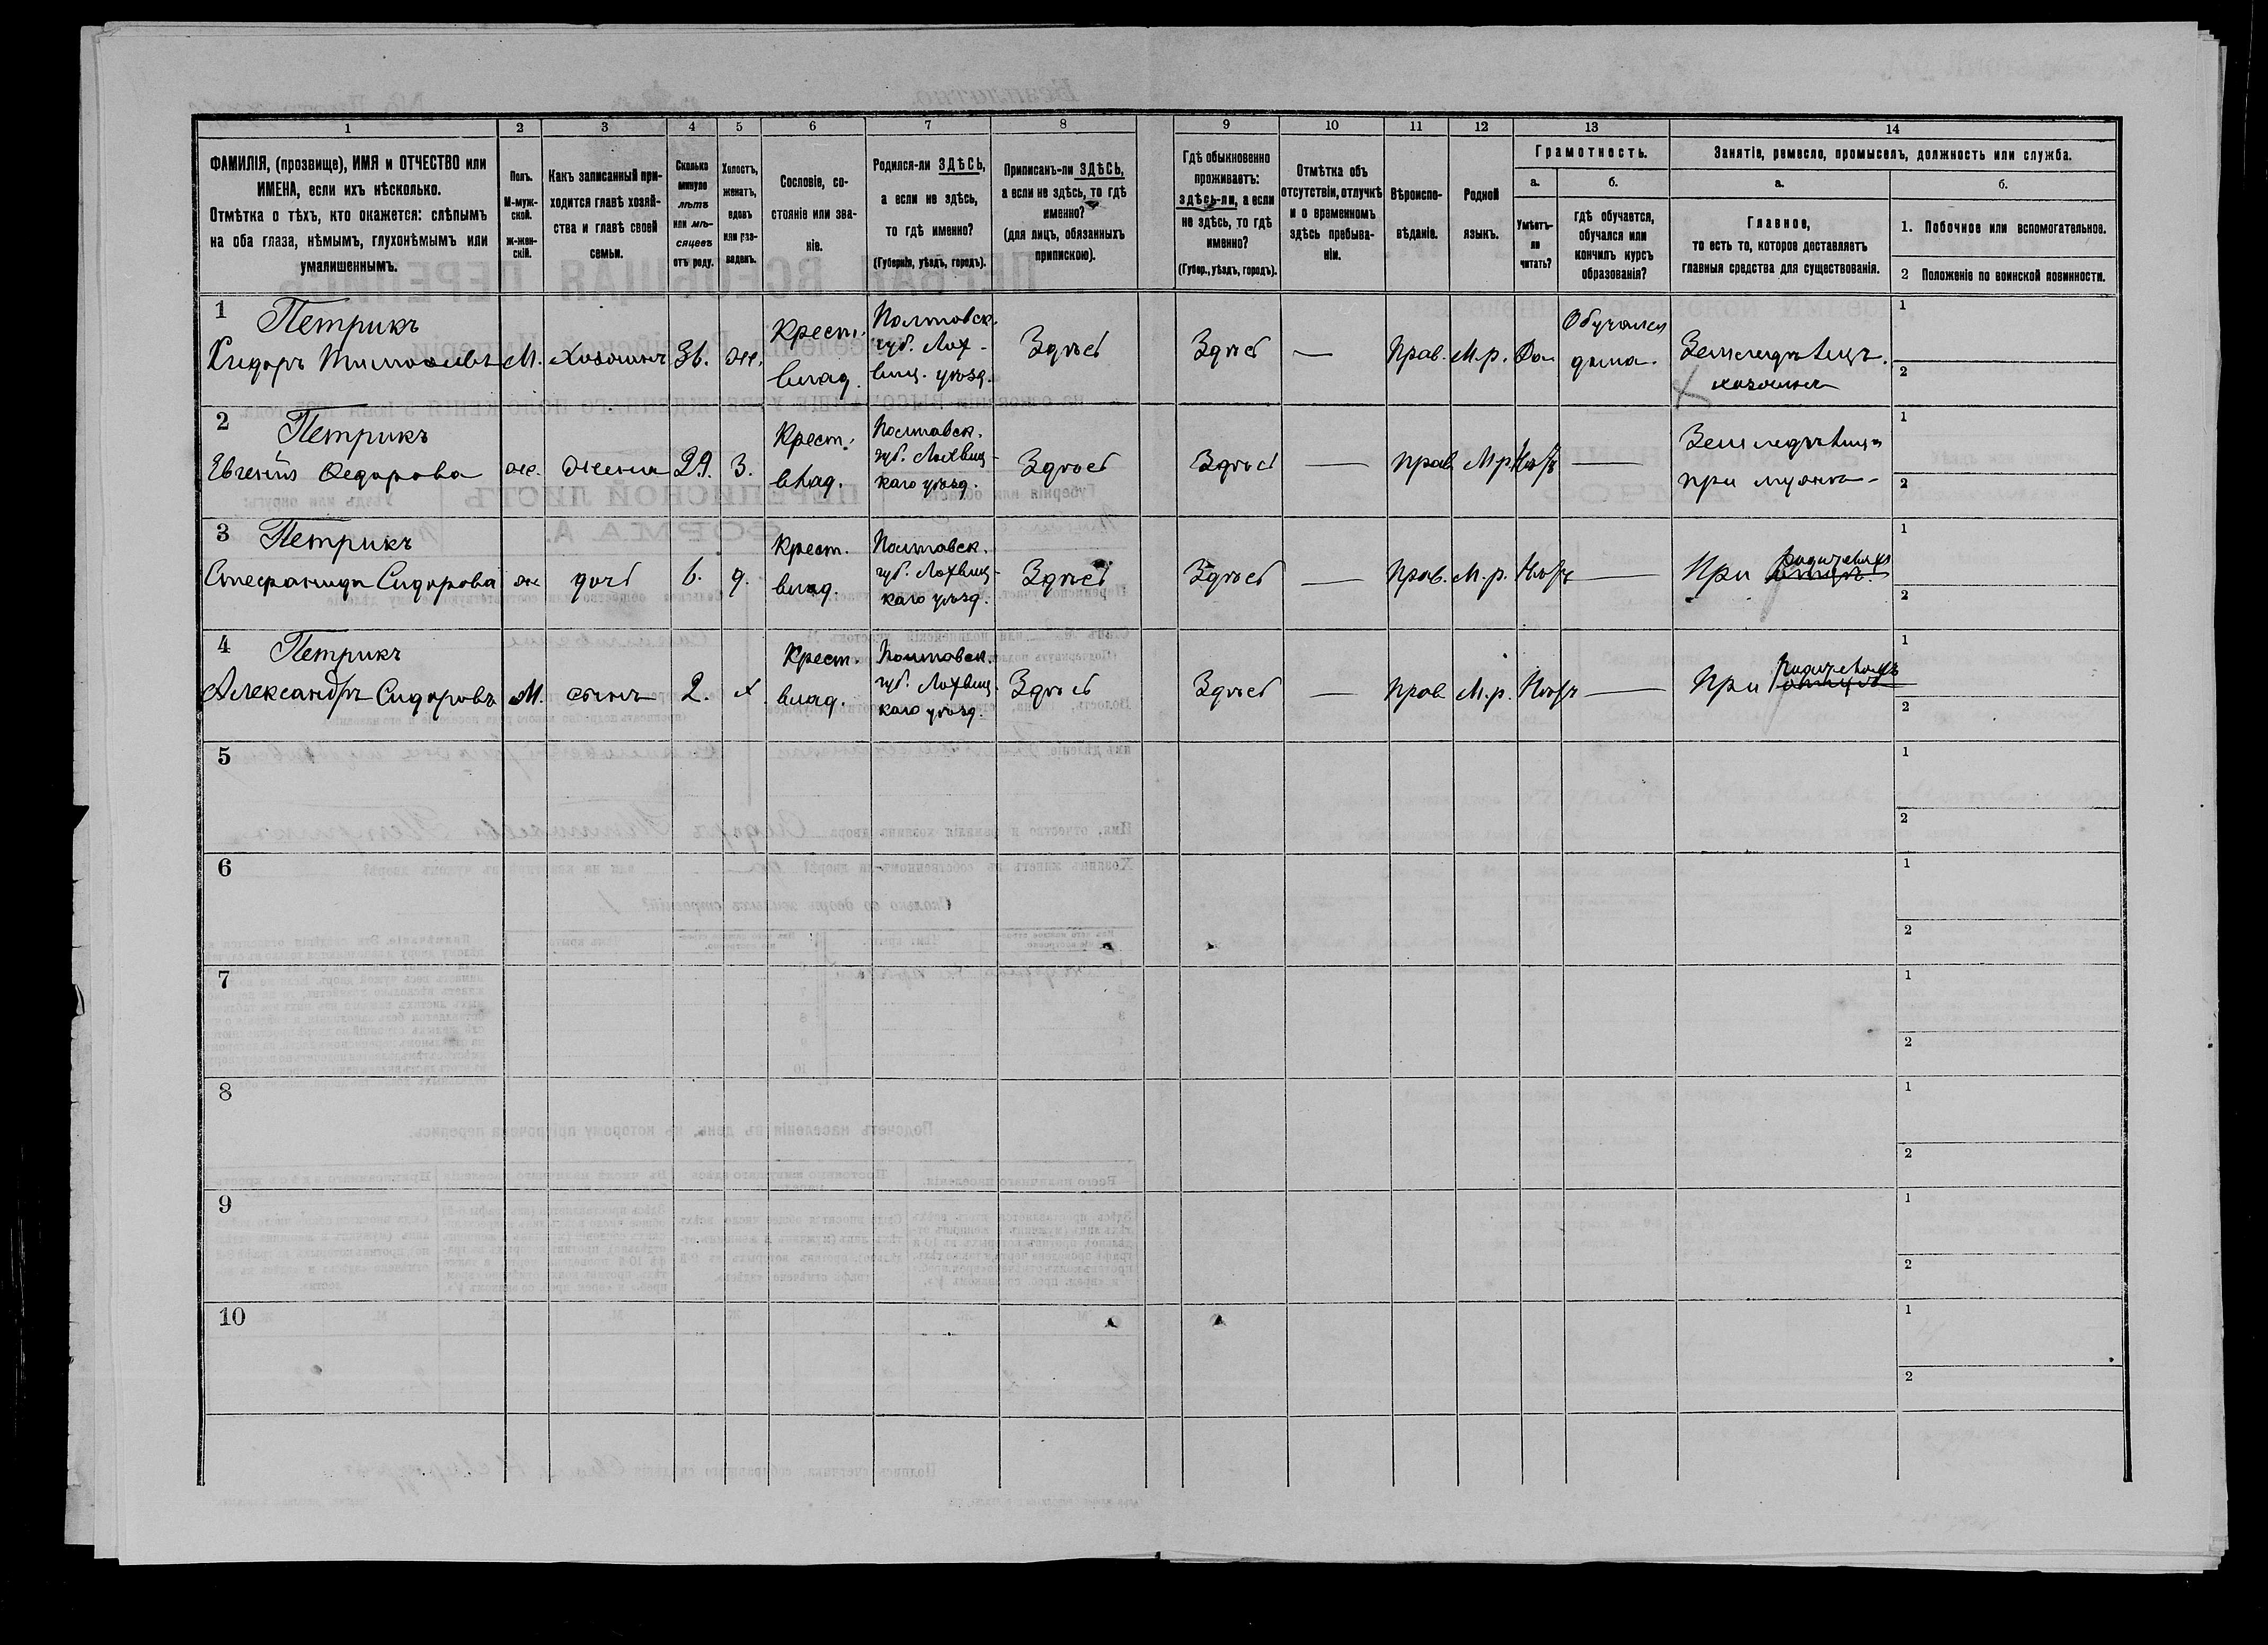 1 2 3 4 5 6 7 8 9 10 11 12 13 14
ФАМИЛІЯ, (прозвище), ИМЯ и ОТЧЕСТВО или
ИМЕНА, если ихъ нѣсколько.
Отмѣтка о тѣхъ, кто окажется: слѣпымъ
на оба глаза, нѣмымъ, глухонѣмымъ или
умалишеннымъ.
Полъ.
М-муж-
ской.
ж-жен-
скій.
Какъ записанный при-
ходится главѣ хозяй-
ства и главѣ своей
семьи.
Сколько
минуло
лѣтъ
или мѣ-
сяцевъ
отъ роду.
Холостъ,
женатъ,
вдовъ
или раз-
веденъ.
Сословіе, со-
стояніе или зва-
ніе.
Родился-ли ЗДѢСЬ,
а если не здѣсь,
то гдѣ именно?
(Губернія, уѣздъ, городъ).
Приписанъ-ли ЗДѢСЬ,
а если не здѣсь, то гдѣ
именно?
(для лицъ, обязанныхъ
припискою).
Гдѣ обыкновенно
проживаетъ:
здѣсь-ли, а если
не здѣсь, то гдѣ
именно?
(Губер., уѣздъ, городъ).
Отмѣтка объ
отсутствіи, отлучкѣ
и о временномъ
здѣсь пребыва-
ніи.
Вѣроиспо-
вѣданіе.
Родной
языкъ.
Грамотность.
а.
Умѣетъ-
ли
читать?
б.
гдѣ обучается,
обучался или
кончилъ курсъ
образованія?
Занятіе, ремесло, промыселъ, должность или служба.
а.
Главное,
то есть то, которое доставляетъ
главныя средства для существованія.
б.
1. Побочное или вспомогательное.
2 Положеніе по воинской повинности.
1 Петрикъ
Сидоръ Тимофеевъ М. хозяинъ 36. же.
Крест.
влад.
Полтавск.
губ. Лох-
виц. уѣзд.
Здѣсь Здѣсь — Прав. М.р. Да
Обучался
дома.
Земледѣлецъ.
хозяинъ
1
2
2 Петрикъ
Евгенія Федорова же. жена 29. З.
Крест.
влад.
Полтавск.
губ. Лохвиц-
каго уѣзд.
Здѣсь Здѣсь — прав М.р Нѣтъ —
Земледѣлица
при мужѣ
1
2
3 Петрикъ
Стефанида Сидорова же дочь 6. д.
Крест.
влад.
Полтавск.
губ. Лохвиц-
каго уѣзд.
Здѣсь Здѣсь — Прав. М.р. Нѣтъ —
При отцѣ. родителяхъ
1
2
4 Петрикъ
Александръ Сидоровъ М. сынъ 2. х
Крест.
влад.
Полтавск.
губ. Лохвиц-
каго уѣзд.
Здѣсь Здѣсь — прав М.р. Нѣтъ —
При отцѣ родителяхъ
1
2
5
1
2
6
1
2
7
1
2
8
1
2
9
1
2
10
1
2